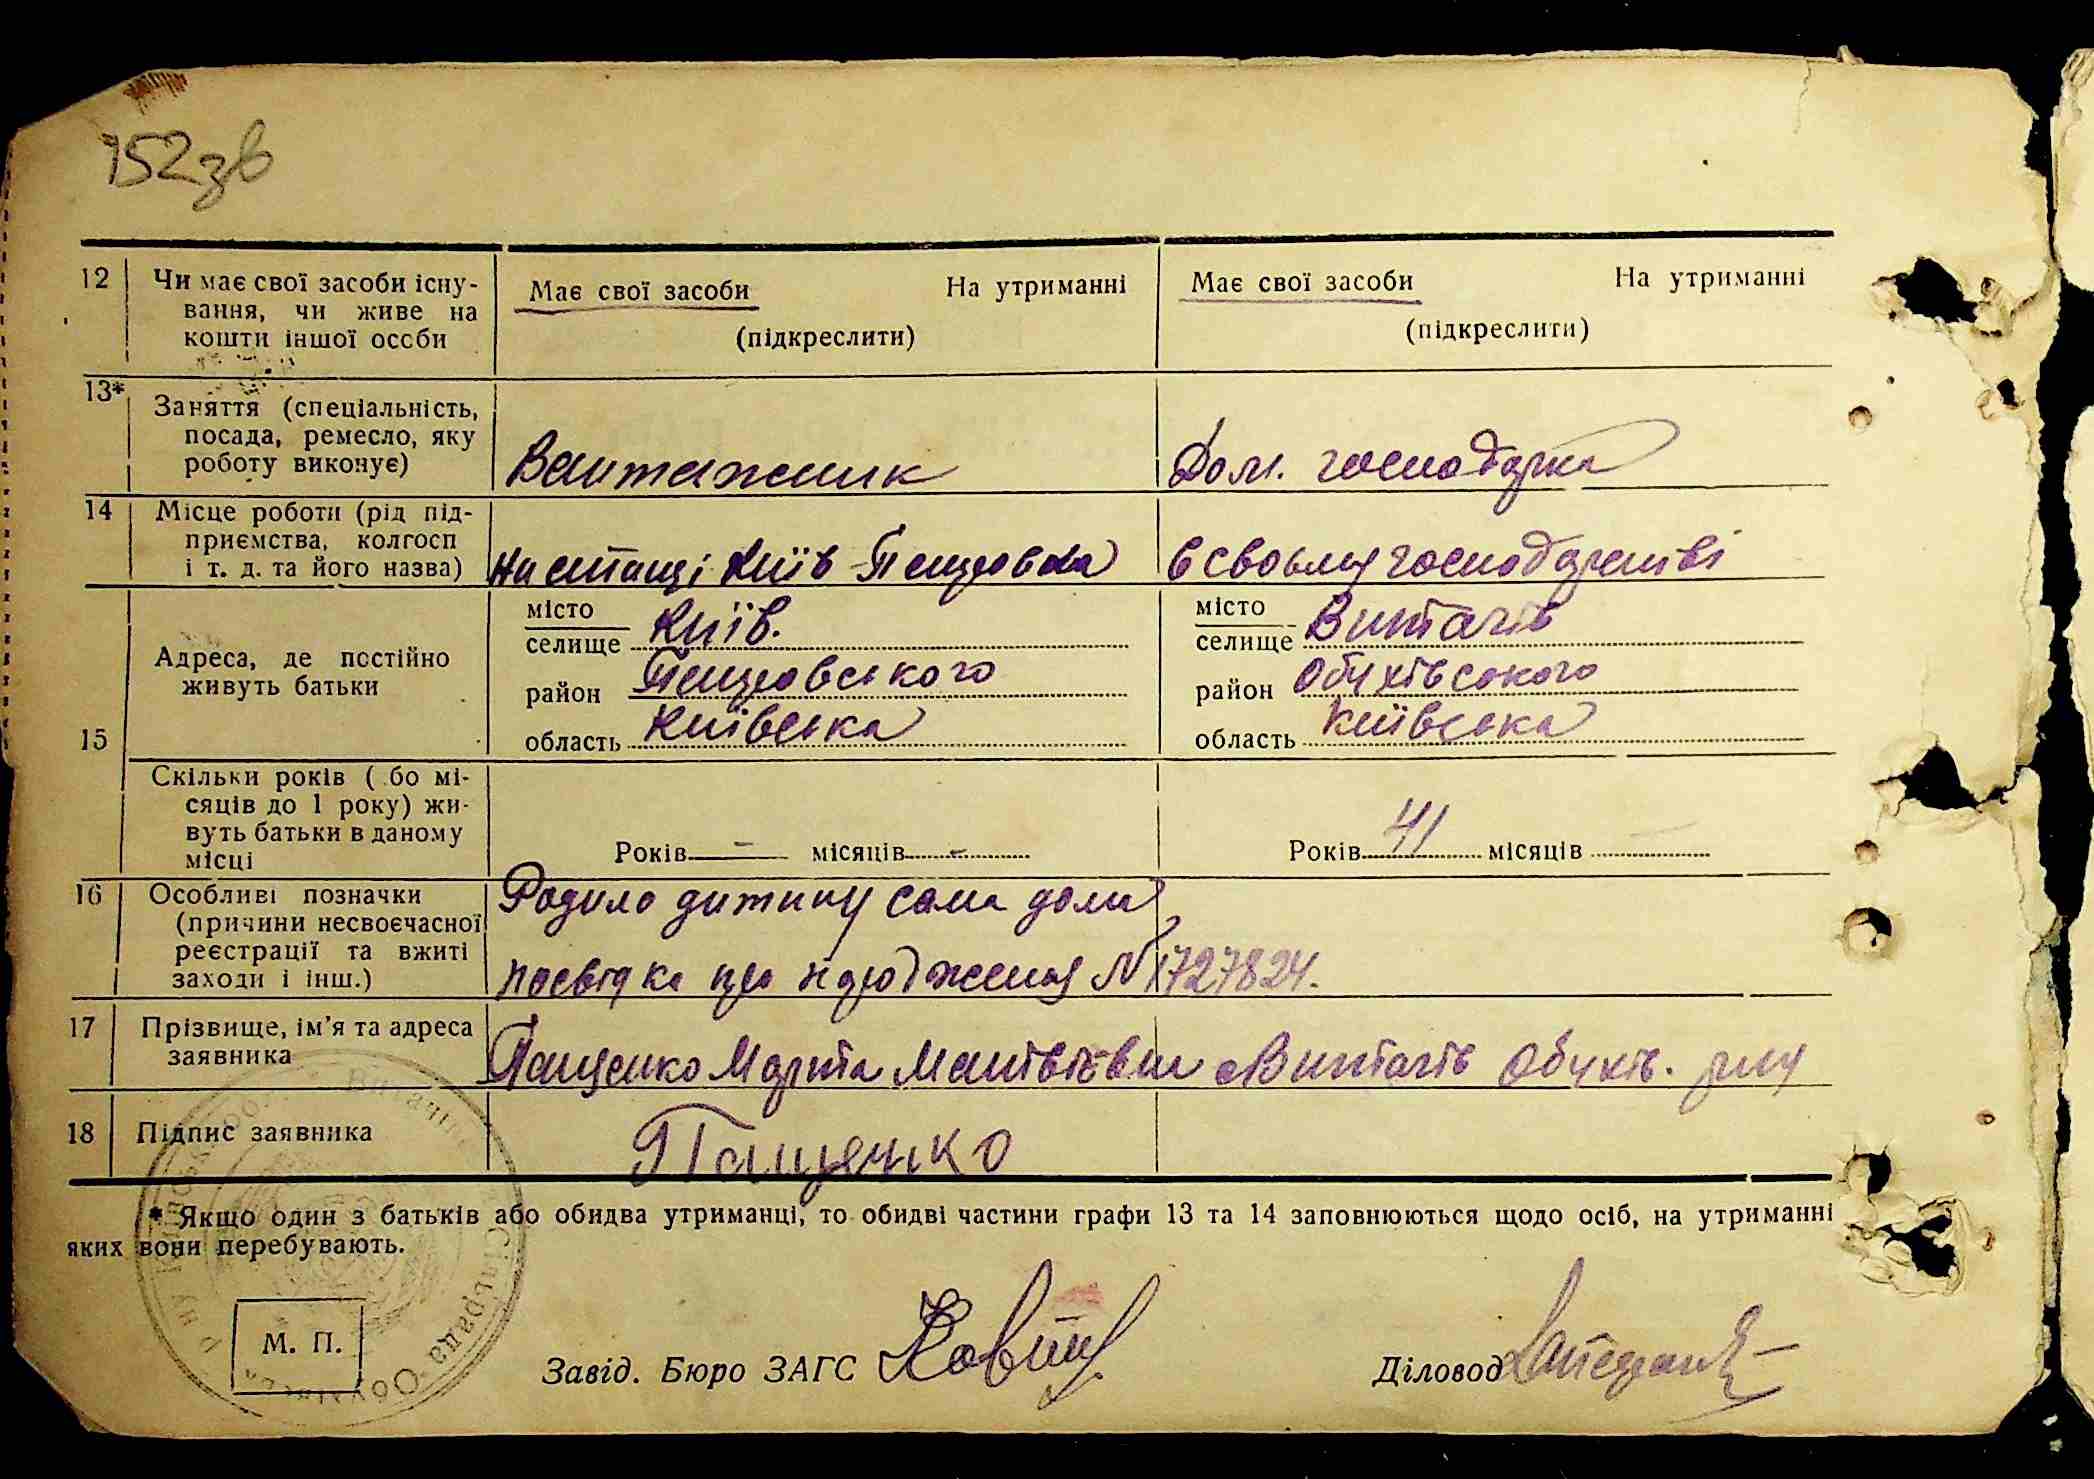 152зв
12 Чи має свої засоби існу-
вання, чи живе на
кошти іншої особи
Має свої засоби На утриманні
(підкреслити)
Має свої засоби На утриманні
(підкреслити)
13* Заняття (спеціальність,
посада, ремесло, яку
роботу виконує)
Вантажник
Дом. господарка
14 Місце роботи (рід під-
приємства, колгосп
і т. д. та його назва)
На станці Київ Петровка
в своьму господарстві
15 Адреса, де постійно
живуть батьки
місто
селище Київ.
район Петровського
область Київська
місто
селище Витачів
район Обухівського
область Київська
Скільки років ( бо мі-
сяців до 1 року) жи-
вуть батьки в даному
місці
Років – місяців –
Років 41 місяців –
16 Особливі позначки
(причини несвоєчасної
реєстрації та вжиті
заходи і інш.)
Родила дитину сама дома
посвідка про народження № 1727824.
17 Прізвище, ім'я та адреса
заявника
Пащенко Марта Матвіївна с Витачів Обухів. р-ну
18 Підпис заявника
Пащенко
* Якщо один з батьків або обидва утриманці, то обидві частини графи 13 та 14 заповнюються щодо осіб, на утриманні
яких вони перебувають.
М. П.
Завід. Бюро ЗАГС
Діловод